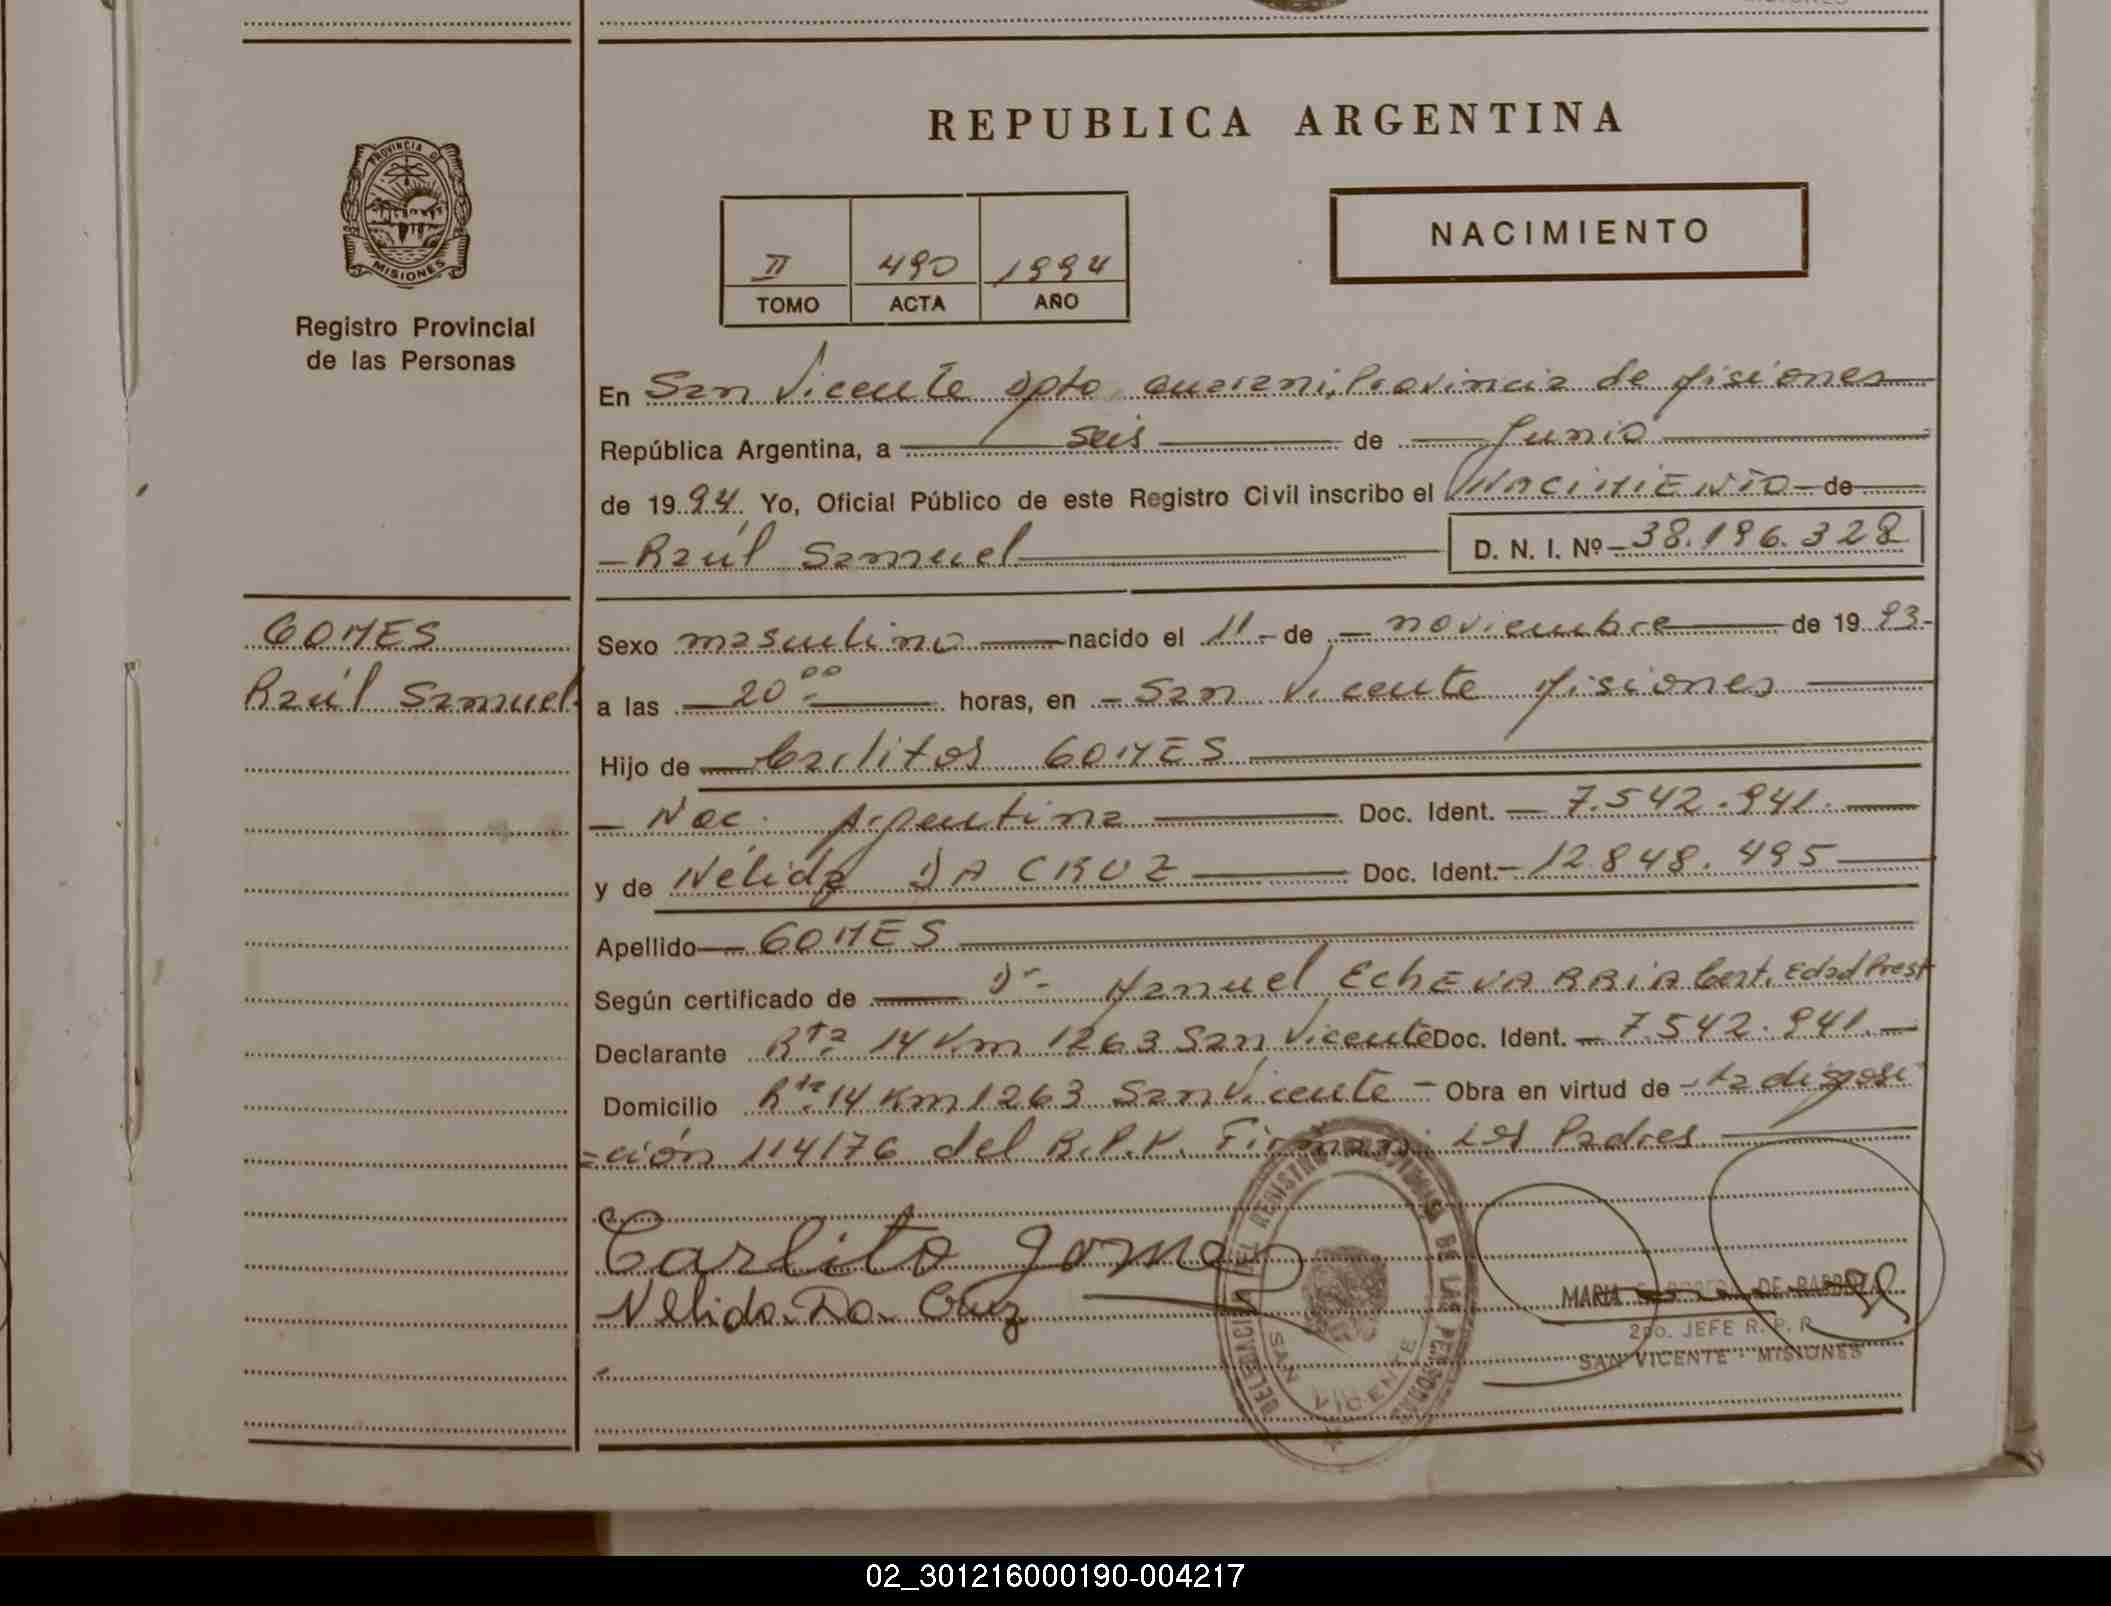 REPUBLICA ARGENTINA
NACIMIENTO
II 490 1994
TOMO ACTA AÑO
PROVINCIA DE
MISIONES
Registro Provincial
de las Personas
En San Vicente Dpto Guarani, Provincia de Misiones
República Argentina, a seis de Junio
de 1994. Yo, Oficial Público de este Registro Civil inscribo el NACIMIENTO de
Raúl Samuel D. N. I. Nº 38.196.328
GOMES
Raúl Samuel
Sexo masculino nacido el 11 de noviembre de 1993
a las 20:00 horas, en San Vicente Misiones
Hijo de Carlitos GOMES
Nac. Argentina Doc. Ident. 7.542.941.
y de Nélida DA CRUZ Doc. Ident. 12.848.495
Apellido GOMES
Según certificado de Dr. Manuel EchEVARRIA Cert. Edad Prest
Declarante Rta 14 Km 1263 San Vicente Doc. Ident. 7.542.941.
Domicilio Rta. 14 Km 1263 San Vicente - Obra en virtud de la disposi
=ción 114/76 del R.P.P. Firman: Los Padres
Carlito gomes
Nelida Da Cruz
DELEGACION DEL REGISTRO PROVINCIAL DE LAS PERSONAS
SAN VICENTE
MARIA DE
2do. JEFE R. P. P.
SAN VICENTE - MISIONES
02_301216000190-004217